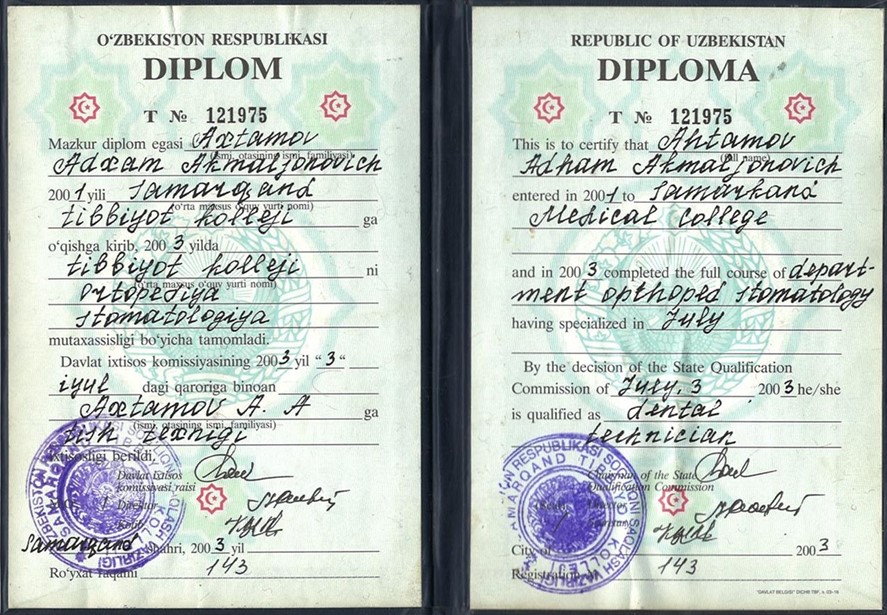 O‘ZBEKISTON RESPUBLIKASI
DIPLOM
T № 121975
Mazkur diplom egasi Axtamov
(ismi, otasining ismi, familiyasi)
Adxam Akmaljonovich
2001 yili Samarqand
(o‘rta maxsus o‘quv yurti nomi)
tibbiyot kolleji ga
o‘qishga kirib, 2003 yilda
tibbiyot kolleji ni
(o‘rta maxsus o‘quv yurti nomi)
ortopediya
stomatologiya
mutaxassisligi bo‘yicha tamomladi.
Davlat ixtisos komissiyasining 2003 yil “3“
iyul dagi qaroriga binoan
Axtamov A. A ga
(ismi, otasining ismi, familiyasi)
tish texnigi
ixtisosligi berildi.
Davlat ixtisos
komissiyasi raisi
Direktor
Kotib
Samarqand shahri, 2003 yil
Ro‘yxat raqami 143
REPUBLIC OF UZBEKISTAN
DIPLOMA
T № 121975
This is to certify that Ahtamov
(full name)
Adham Akmaljonovich
entered in 2001 to Samarkand
Medical College
and in 2003 completed the full course of depart-
ment opthoped stomatology
having specialized in July
By the decision of the State Qualification
Commission of July, 3 2003 he/she
is qualified as dental
technician
Chairman of the State
Qualification Commission
Director
Secretary
City of 2003
Registration № 143
"DAVLAT BELGISI" DIChB TBF.